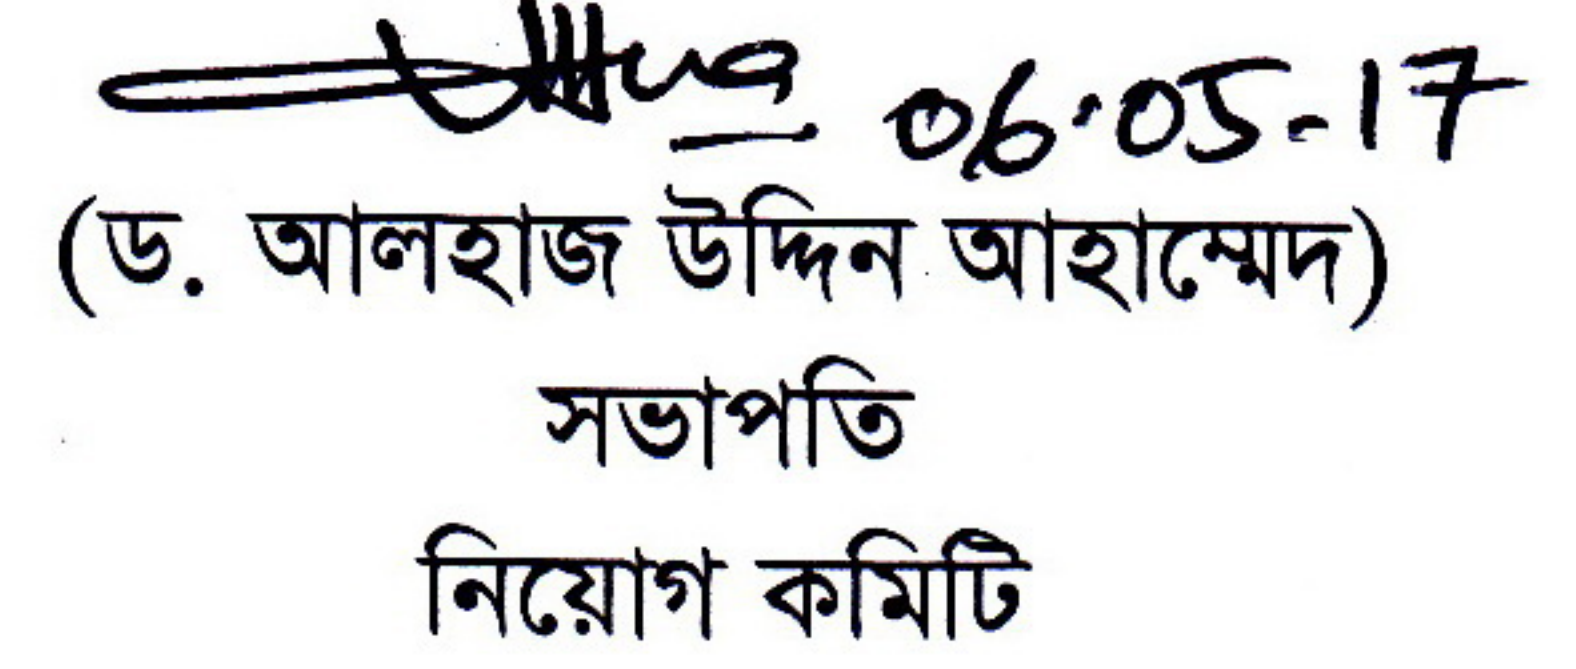 06.05-17
(ড. আলহাজ উদ্দিন আহাম্মেদ)
সভাপতি
নিয়োগ কমিটি